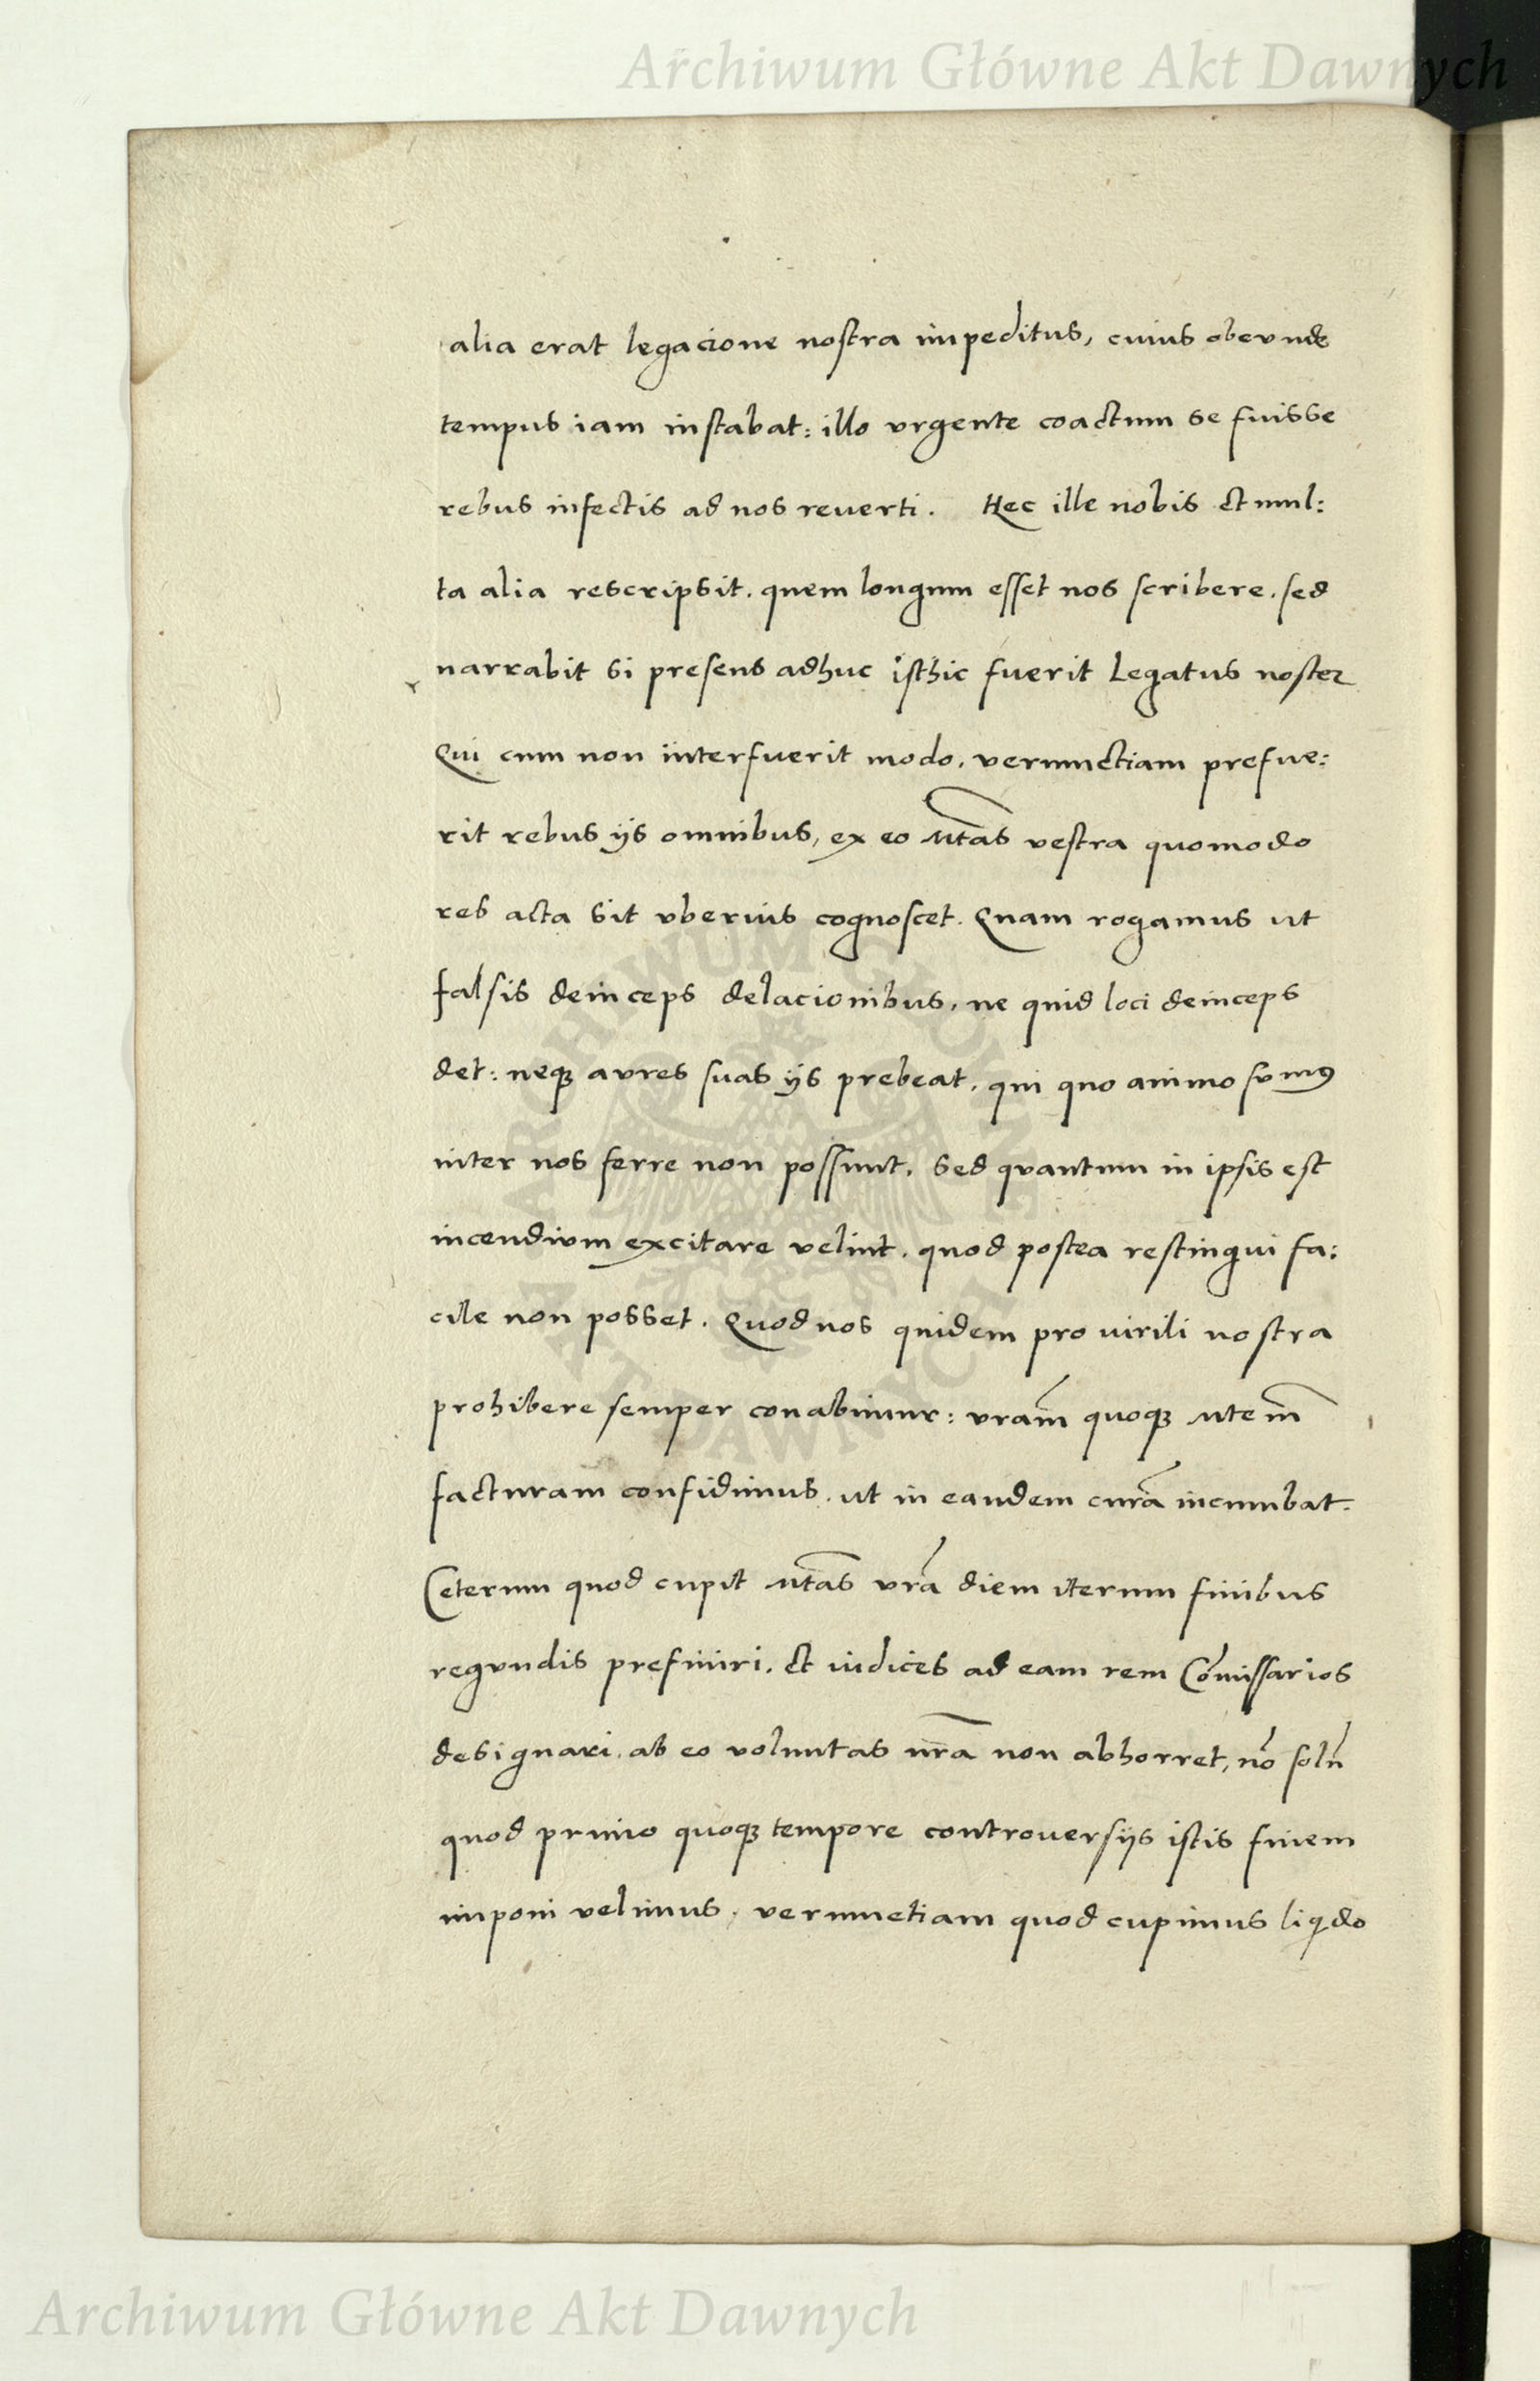 Archiwum Główne Akt Dawnych
alia erat legacione nostra impeditus, cuius obeundę
tempus iam instabat: illo vrgente coactum se fuisse
rebus infectis ad nos reuerti. Hęc ille nobis et mul:
ta alia rescripsit. quem longum esset nos scribere. sed
narrabit si presens adhuc isthic fuerit Legatus noster
Qui cum non interfuerit modo. verumetiam prefue:
rit rebus ijs omnibus, ex eo Mtas vestra quomodo
res acta sit vberius cognoscet. Quam rogamus ut
falsis deinceps delacionibus, ne quid loci deinceps
det: neqꝫ aures suas ijs prebeat. qui quo animo sumꝰ
inter nos ferre non possunt. sed quantum in ipsis est
incendium excitare velint. quod postea restingui fa:
cile non posset. Quod nos quidem pro virili nostra
prohibere semper conabimur: vram̄ quoqꝫ Mtem̄
facturam confidimus. ut in eandem curā incumbat.
Ceterum quod cupit Mtas vrā diem iterum finibus
regundis prefiniri. et iudices ad eam rem Cōmissarios
designari. ab eo voluntas nrā non abhorret, nō solū
quod primo quoqꝫ tempore controuersijs istis finem
imponi velimus. verumetiam quod cupimus liqdo
ARCHIWUM GŁÓWNE AKT DAWNYCH
Archiwum Główne Akt Dawnych